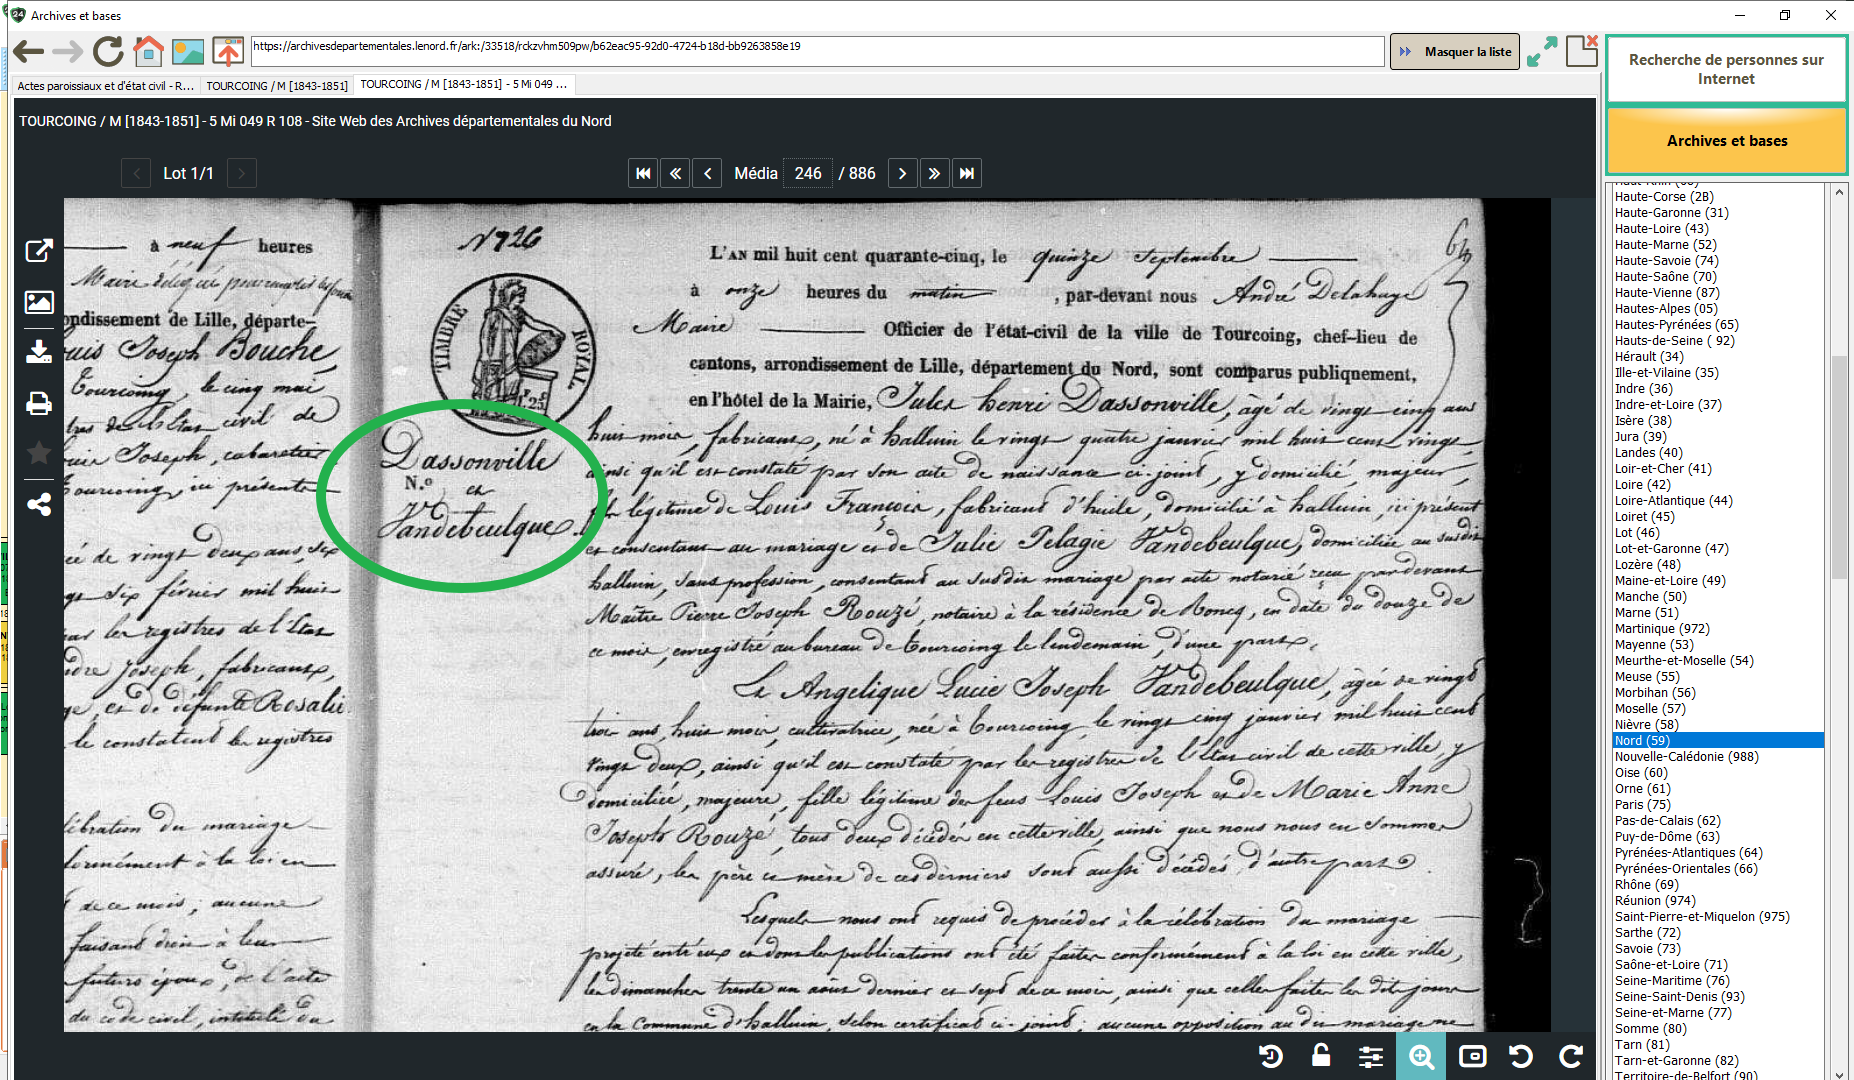 Archives et bases
https://archivesdepartementales.lenord.fr/ark:/33518/rckzvhm509pw/b62eac95-92d0-4724-b18d-bb9263858e19
Masquer la liste
Actes paroissiaux et d'état civil - R...
TOURCOING / M [1843-1851]
TOURCOING / M [1843-1851] - 5 Mi 049 ...
TOURCOING / M [1843-1851] - 5 Mi 049 R 108 - Site Web des Archives départementales du Nord
Lot 1/1
Média 246 / 886
à neuf heures
ondissement de Lille, départe-
ouis Joseph Bouche,
Tourcoing, le cinq mai
Joseph, cabaretier
Tourcoing, ici présent
cé de vingt deux ans, six
six février mil huit
par les registres de l'Etat
Joseph, fabricant,
et de défunte Rosalie
le constatent les registres
célébration du mariage
formément à la loi en
de ce mois; aucune
faisant droit à leur
futurs époux, de l'acte
du code civil, intitulé du
N° 26
TIMBRE ROYAL
Dassonville
N.º
et
Vandebeulque.
L'AN mil huit cent quarante-cinq, le quinze septembre
à onze heures du matin, par-devant nous André Delahaye
Maire Officier de l'état-civil de la ville de Tourcoing, chef-lieu de
cantons, arrondissement de Lille, département du Nord, sont comparus publiquement,
en l'hôtel de la Mairie, Jules henri Dassonville, âgé de vingt cinq ans
huit mois, fabricant, né à halluin le vingt quatre janvier mil huit cent vingt,
ainsi qu'il est constaté par son acte de naissance ci-joint, y domicilié, majeur,
fils légitime de Louis François, fabricant d'huile, domicilié à halluin, ici présent
et consentant au mariage et de Julie Pelagie Vandebeulque, domiciliée au susdit
halluin, sans profession, consentant au susdit mariage par acte notarié reçu pardevant
Maître Pierre Joseph Rouzé, notaire à la résidence de Roncq, en date du douze de
ce mois, enregistré au bureau de Tourcoing le lendemain, d'une part,
Et Angelique Lucie Joseph Vandebeulque, âgée de vingt
trois ans, huit mois, cultivatrice, née à Tourcoing, le vingt cinq janvier mil huit cent
vingt deux, ainsi qu'il est constaté par les registres de l'Etat civil de cette ville, y
domiciliée, majeure, fille légitime de feus Louis Joseph et de Marie Anne
Josephe Rouze, tous deux décédés en cette ville, ainsi que nous nous en sommes
assuré, les père et mère de ces derniers sont aussi décédés, d'autre part.
Lesquels nous ont requis de procéder à la célébration du mariage
projeté entr'eux et dont les publications ont été faites conformément à la loi en cette ville,
les dimanches trente un août dernier et sept de ce mois, ainsi que celles faites les dits jours
en la Commune d'halluin, selon certificat ci-joint; aucune opposition au dit mariage ne
Recherche de personnes sur
Internet
Archives et bases
Haut-Rhin (68)
Haute-Corse (2B)
Haute-Garonne (31)
Haute-Loire (43)
Haute-Marne (52)
Haute-Savoie (74)
Haute-Saône (70)
Haute-Vienne (87)
Hautes-Alpes (05)
Hautes-Pyrénées (65)
Hauts-de-Seine ( 92)
Hérault (34)
Ille-et-Vilaine (35)
Indre (36)
Indre-et-Loire (37)
Isère (38)
Jura (39)
Landes (40)
Loir-et-Cher (41)
Loire (42)
Loire-Atlantique (44)
Loiret (45)
Lot (46)
Lot-et-Garonne (47)
Lozère (48)
Maine-et-Loire (49)
Manche (50)
Marne (51)
Martinique (972)
Mayenne (53)
Meurthe-et-Moselle (54)
Meuse (55)
Morbihan (56)
Moselle (57)
Nièvre (58)
Nord (59)
Nouvelle-Calédonie (988)
Oise (60)
Orne (61)
Paris (75)
Pas-de-Calais (62)
Puy-de-Dôme (63)
Pyrénées-Atlantiques (64)
Pyrénées-Orientales (66)
Rhône (69)
Réunion (974)
Saint-Pierre-et-Miquelon (975)
Sarthe (72)
Savoie (73)
Saône-et-Loire (71)
Seine-Maritime (76)
Seine-Saint-Denis (93)
Seine-et-Marne (77)
Somme (80)
Tarn (81)
Tarn-et-Garonne (82)
Territoire-de-Belfort (90)